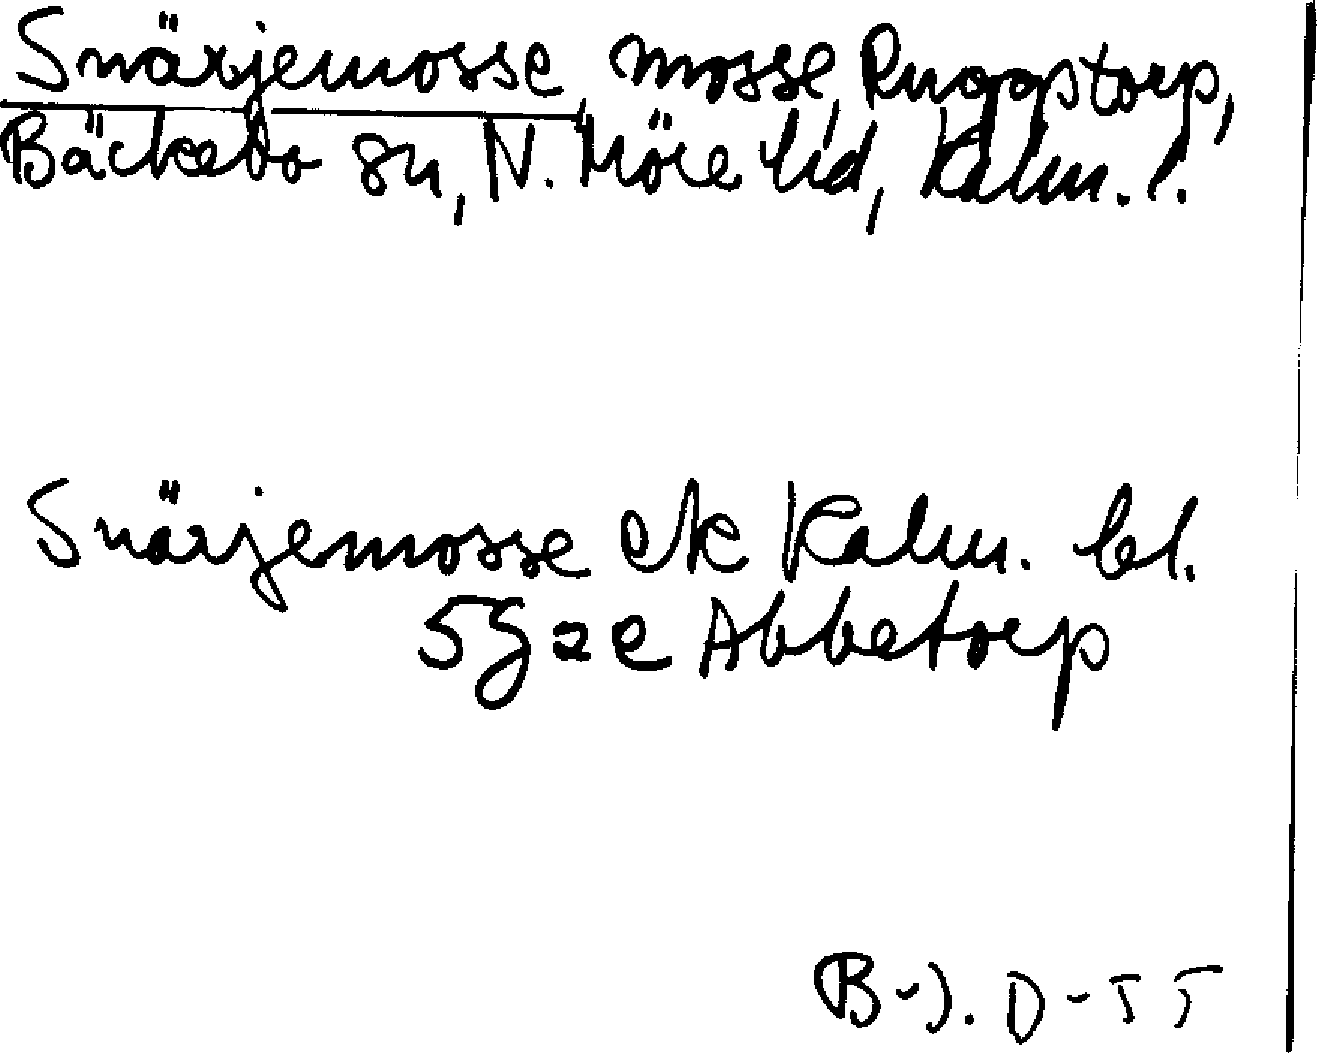 Snärjemosse, mosse, Ruggstorp,
Bäckebo sn, N. Möre hd, Kalm. l.
Snärjemosse ek Kalm. bl.
5G 2 e Abbetorp